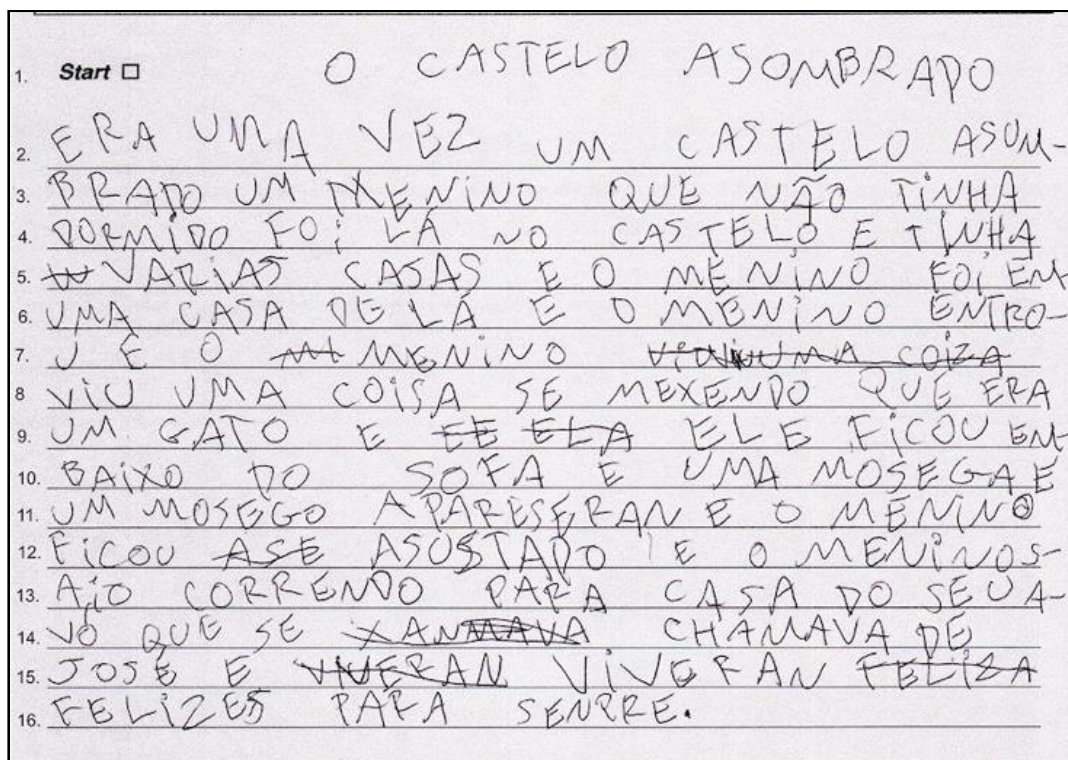 1. Start □ O CASTELO ASOMBRADO
2. ERA UMA VEZ UM CASTELO ASOM-
3. BRADO UM MENINO QUE NÃO TINHA
4. DORMIDO FOI LÁ NO CASTELO E TINHA
5. VARIAS CASAS E O MENINO FOI EM
6. UMA CASA DE LÁ E O MENINO ENTRO-
7. U E O MENINO VIU UMA COIZA
8 VIU UMA COISA SE MEXENDO QUE ERA
9. UM GATO E EE ELA ELE FICOU EM-
10. BAIXO DO SOFA E UMA MOSEGA E
11. UM MOSEGO APARESERAN E O MENINO
12. FICOU ASE ASUSTADO E O MENINO S-
13. AIO CORRENDO PARA CASA DO SEU A-
14. VO QUE SE XANMAVA CHAMAVA DE
15. JOSÉ E VIVERAN VIVERAN FELIZA
16. FELIZES PARA SENPRE.